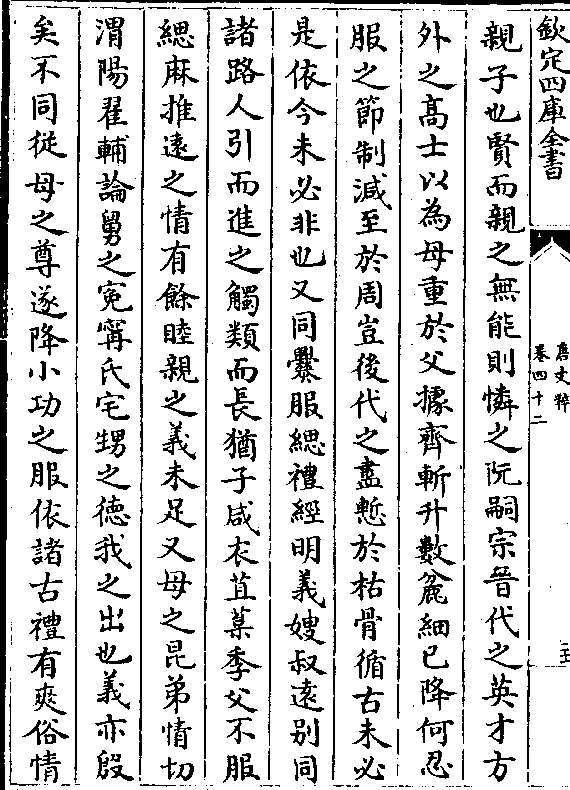 欽定四庫全書
唐文粹
卷四十二
親子也賢而親之無能則憐之阮嗣宗晉代之英才方
外之高士以為母重於父據齊斬升數麄細已降何忍
服之節制減至於周豈後代之盡慙於枯骨循古未必
是依今未必非也又同爨服緦禮經明義嫂叔逺别同
諸路人引而進之觸類而長猶子咸衣苴菓季父不服
緦麻推逺之情有餘睦親之義未足又母之昆弟情切
渭陽翟輔論舅之寃甯氏宅甥之徳我之出也義亦殷
矣不同從母之尊遂降小功之服依諸古禮有爽俗情